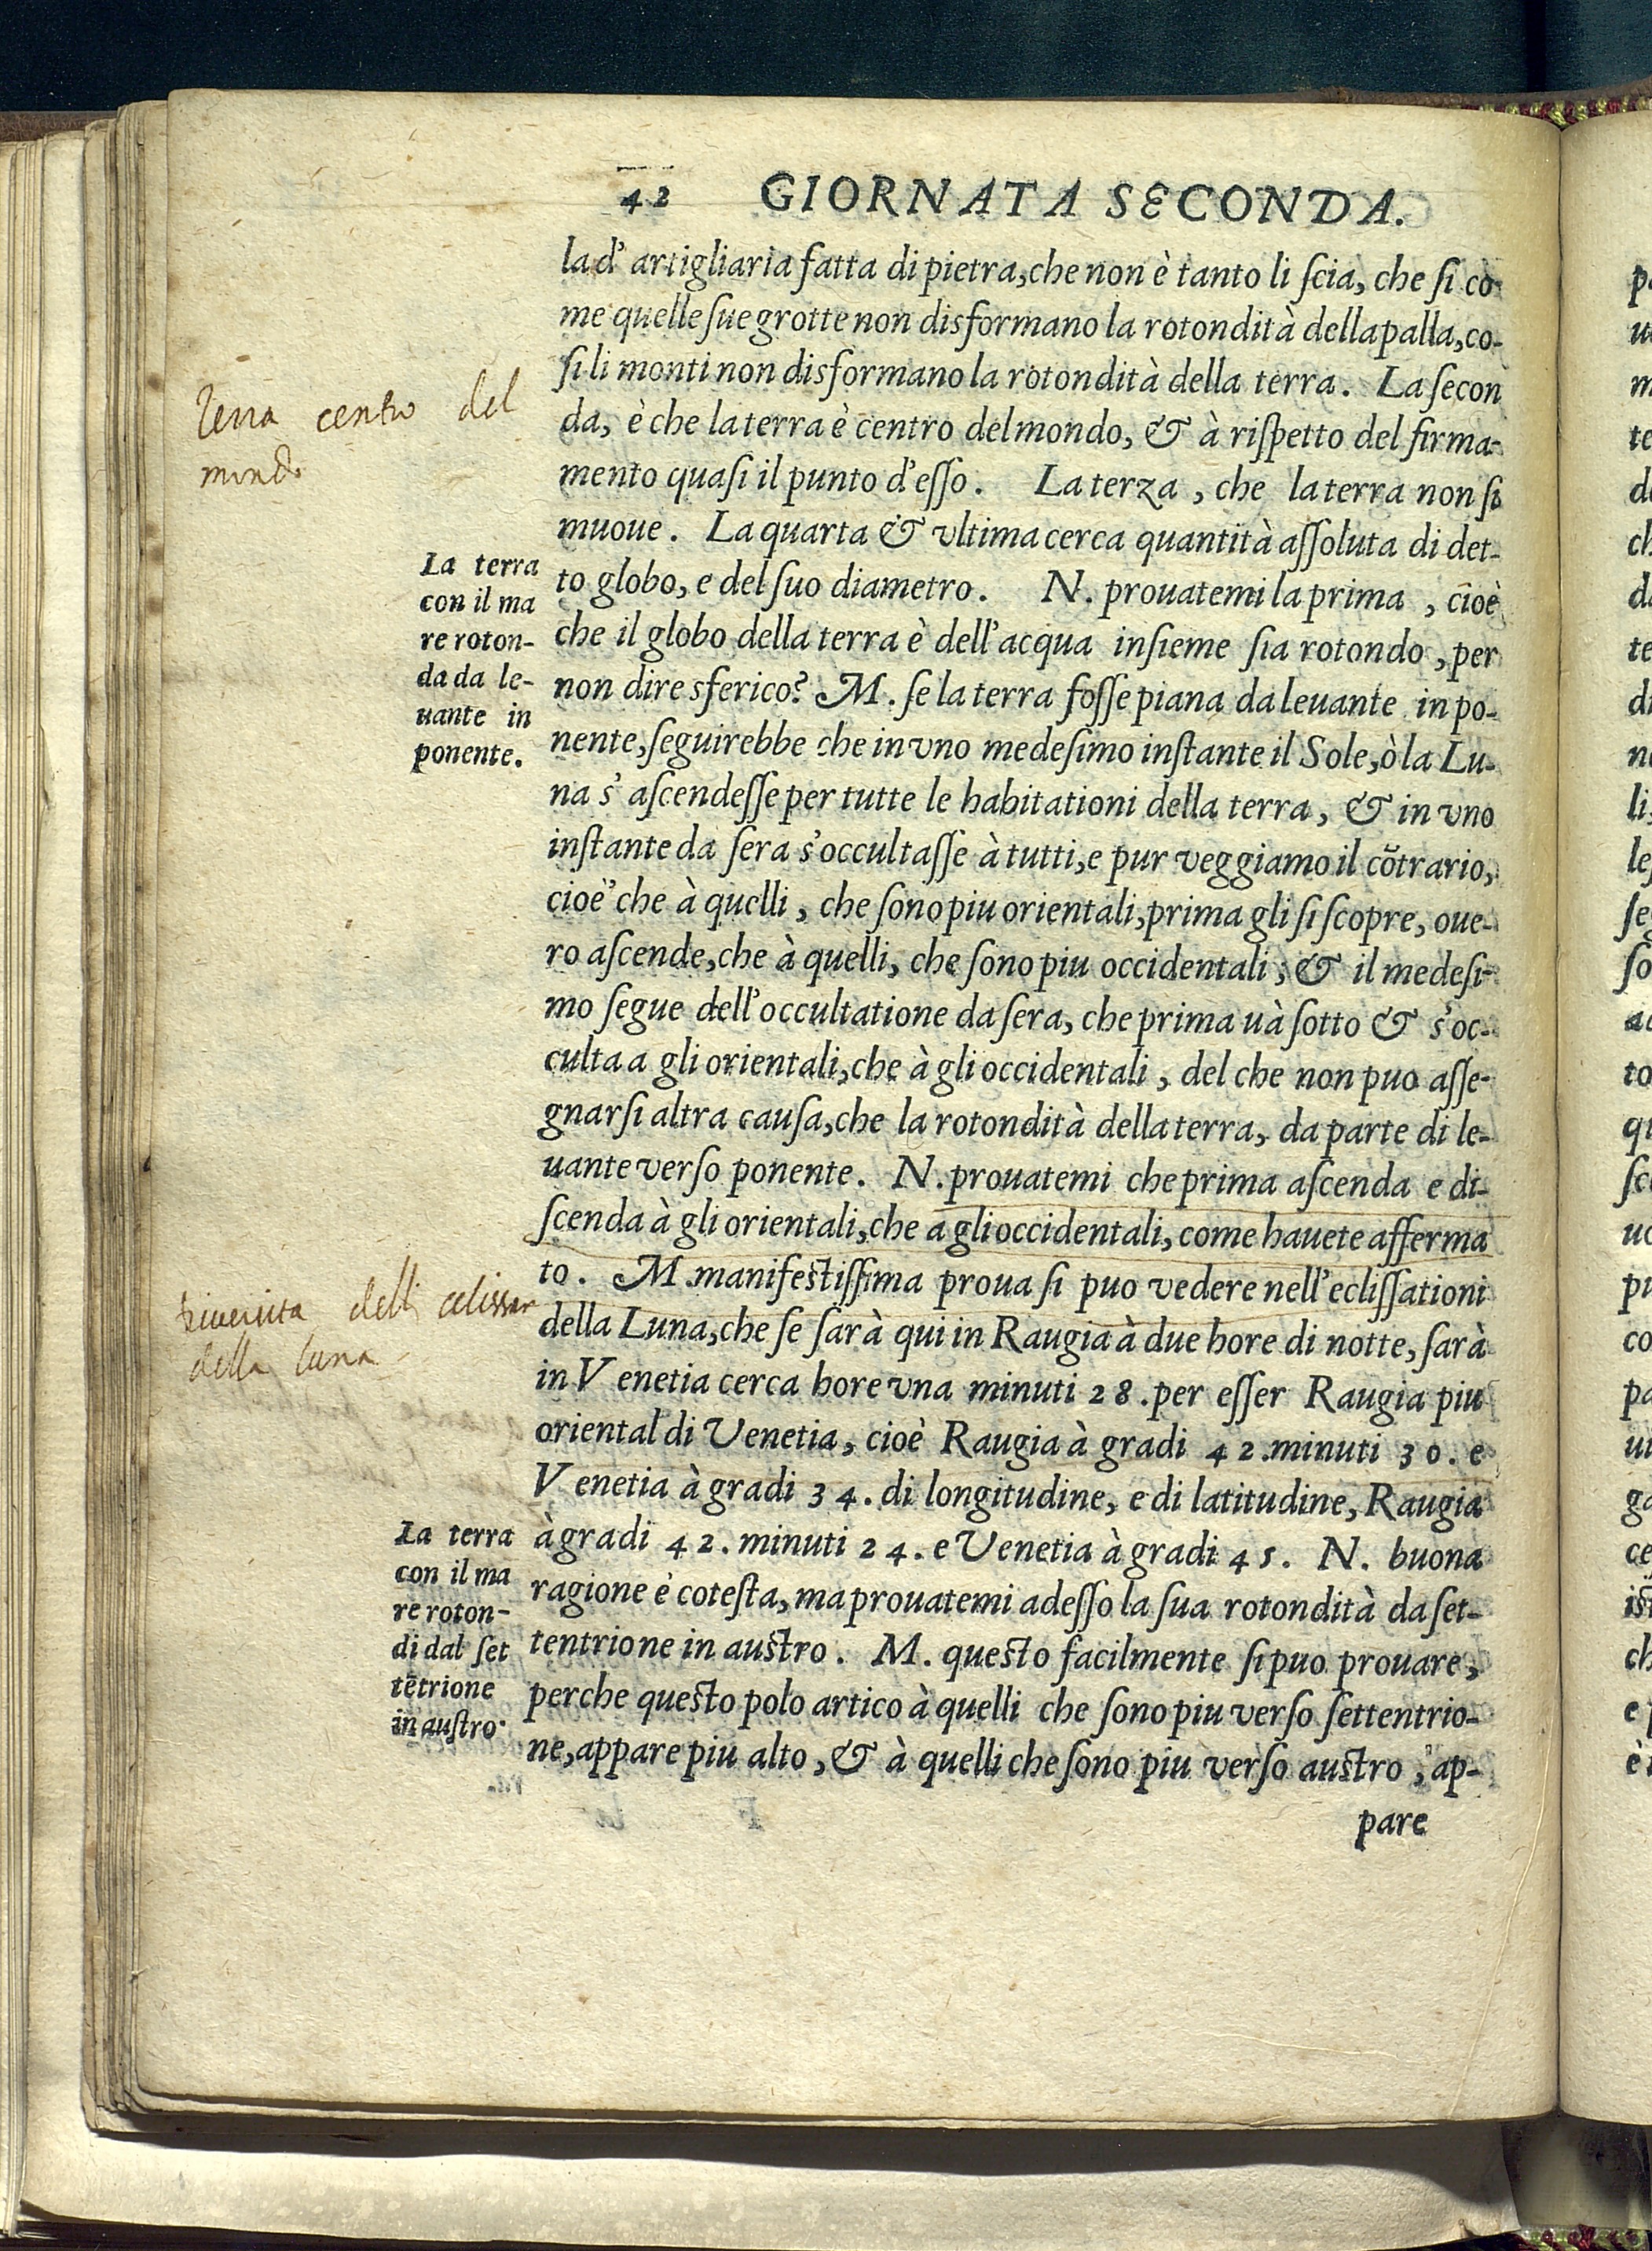 42 GIORNATA SECONDA.
la d'artigliaria fatta di pietra, che non è tanto li ſcia, che ſi co
me quelle ſue grotte non disformano la rotondità della palla, co-
ſi li monti non disformano la rotondità della terra. La ſecon
da, è che la terra è centro del mondo, & à riſpetto del firma-
mento quaſi il punto d'eſſo. La terza, che la terra non ſi
muoue. La quarta & vltima cerca quantità aſſoluta di det-
to globo, e del ſuo diametro. N. prouatemi la prima, cioè
che il globo della terra è dell'acqua inſieme ſia rotondo, per
non dire sferico? M. ſe la terra foſſe piana da leuante in po-
nente, ſeguirebbe che in vno medeſimo inſtante il Sole, ò la Lu-
na s'aſcendeſſe per tutte le habitationi della terra, & in vno
inſtante da ſera s'occultaſſe à tutti, e pur veggiamo il cõtrario,
cioè che à quelli, che ſono piu orientali, prima gli ſi ſcopre, oue-
ro aſcende, che à quelli, che ſono piu occidentali, & il medeſi-
mo ſegue dell'occultatione da ſera, che prima uà ſotto & s'oc-
culta a gli orientali, che à gli occidentali, del che non puo aſſe-
gnarſi altra cauſa, che la rotondità della terra, da parte di le-
uante verſo ponente. N. prouatemi che prima aſcenda e di-
ſcenda à gli orientali, che a gli occidentali, come hauete afferma
to. M. manifeſtiſſima proua ſi puo vedere nell'ecliſſationi
della Luna, che ſe ſarà qui in Raugia à due hore di notte, ſarà
in Venetia cerca hore vna minuti 28. per eſſer Raugia piu
oriental di Venetia, cioè Raugia à gradi 42. minuti 30. e
Venetia à gradi 34. di longitudine, e di latitudine, Raugia
à gradi 42. minuti 24. e Venetia à gradi 45. N. buona
ragione è coteſta, ma prouatemi adeſſo la ſua rotondità da ſet-
tentrione in auſtro. M. queſto facilmente ſi puo prouare,
perche queſto polo artico à quelli che ſono piu verſo ſettentrio-
ne, appare piu alto, & à quelli che ſono piu verſo auſtro, ap-
pare
Terra centro del
mondo
La terra
con il ma
re roton-
da da le-
uante in
ponente.
delli
della luna
La terra
con il ma
re roton-
di dal ſet
tẽtrione
in auſtro.